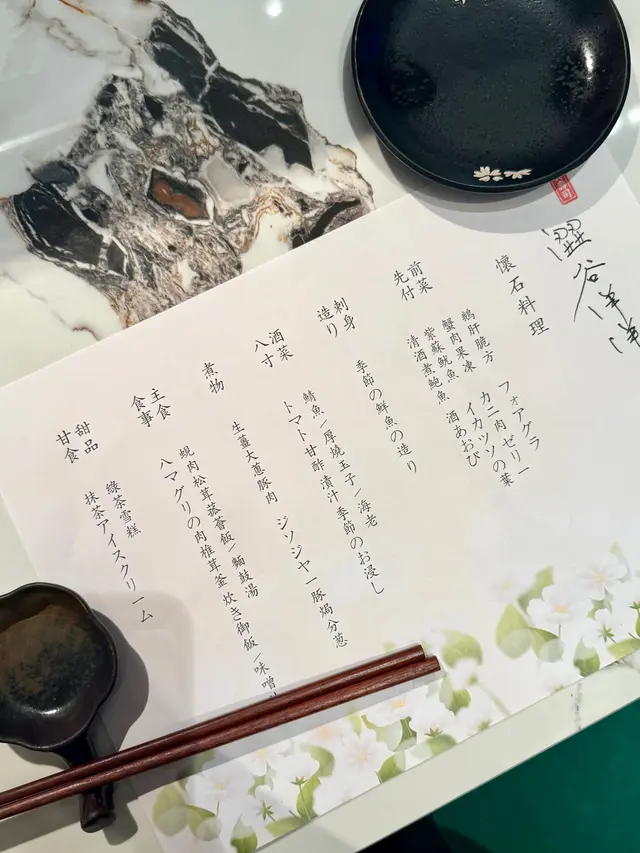 澀谷洋洋
懷石料理
前菜
先付
鵝肝脆方 フォアグラ
蟹肉果凍 カニ肉ゼリー
紫蘇魷魚 イカツソの葉
清酒煮鮑魚 酒あおび
刺身
造り
季節の鮮魚の造り
酒菜
八寸
鯖魚/厚燒玉子/海老
トマト甘酢漬汁 季節のお浸し
煮物
生薑大蔥豚肉 ジソジャー豚焗分葱
主食
食事
蜆肉松茸菇釜飯/麵鼓湯
ハマグリの肉椎茸釜 炊き御飯/味噌
甜品
甘食
綠茶雪糕
抹茶アイスクリーム